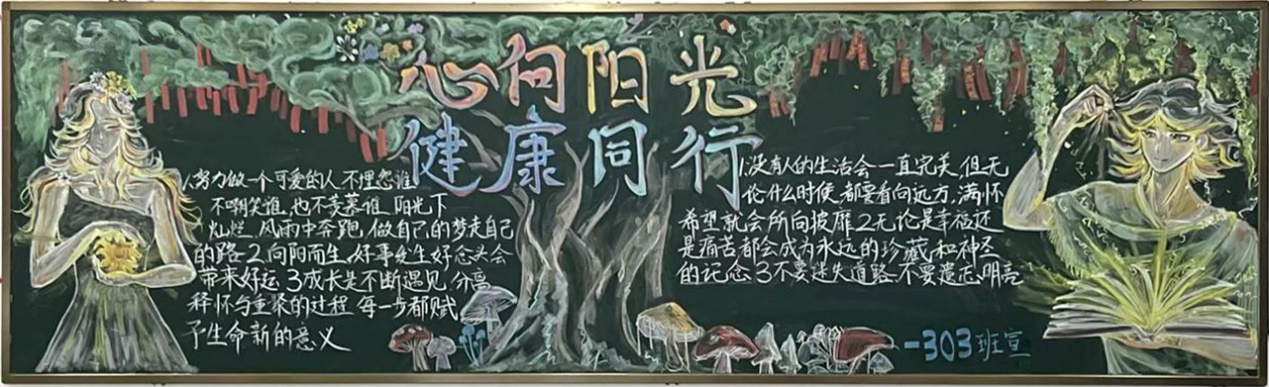 心向阳光
健康同行
1.努力做一个可爱的人不埋怨谁
不嘲笑谁,也不羡慕谁 阳光下
灿烂 风雨中奔跑,做自己的梦走自己
的路 2向阳而生,好事发生好念头会
带来好运 3成长是不断遇见 分离
释怀与重聚的过程 每一步都赋
予生命新的意义
1.没有人的生活会一直完美,但无
论什么时候,都要看向远方,满怀
希望就会所向披靡 2无论是幸福还
是痛苦都会成为永远的珍藏和神圣
的记念 3不要迷失道路 不要遗忘明亮
-303班宣